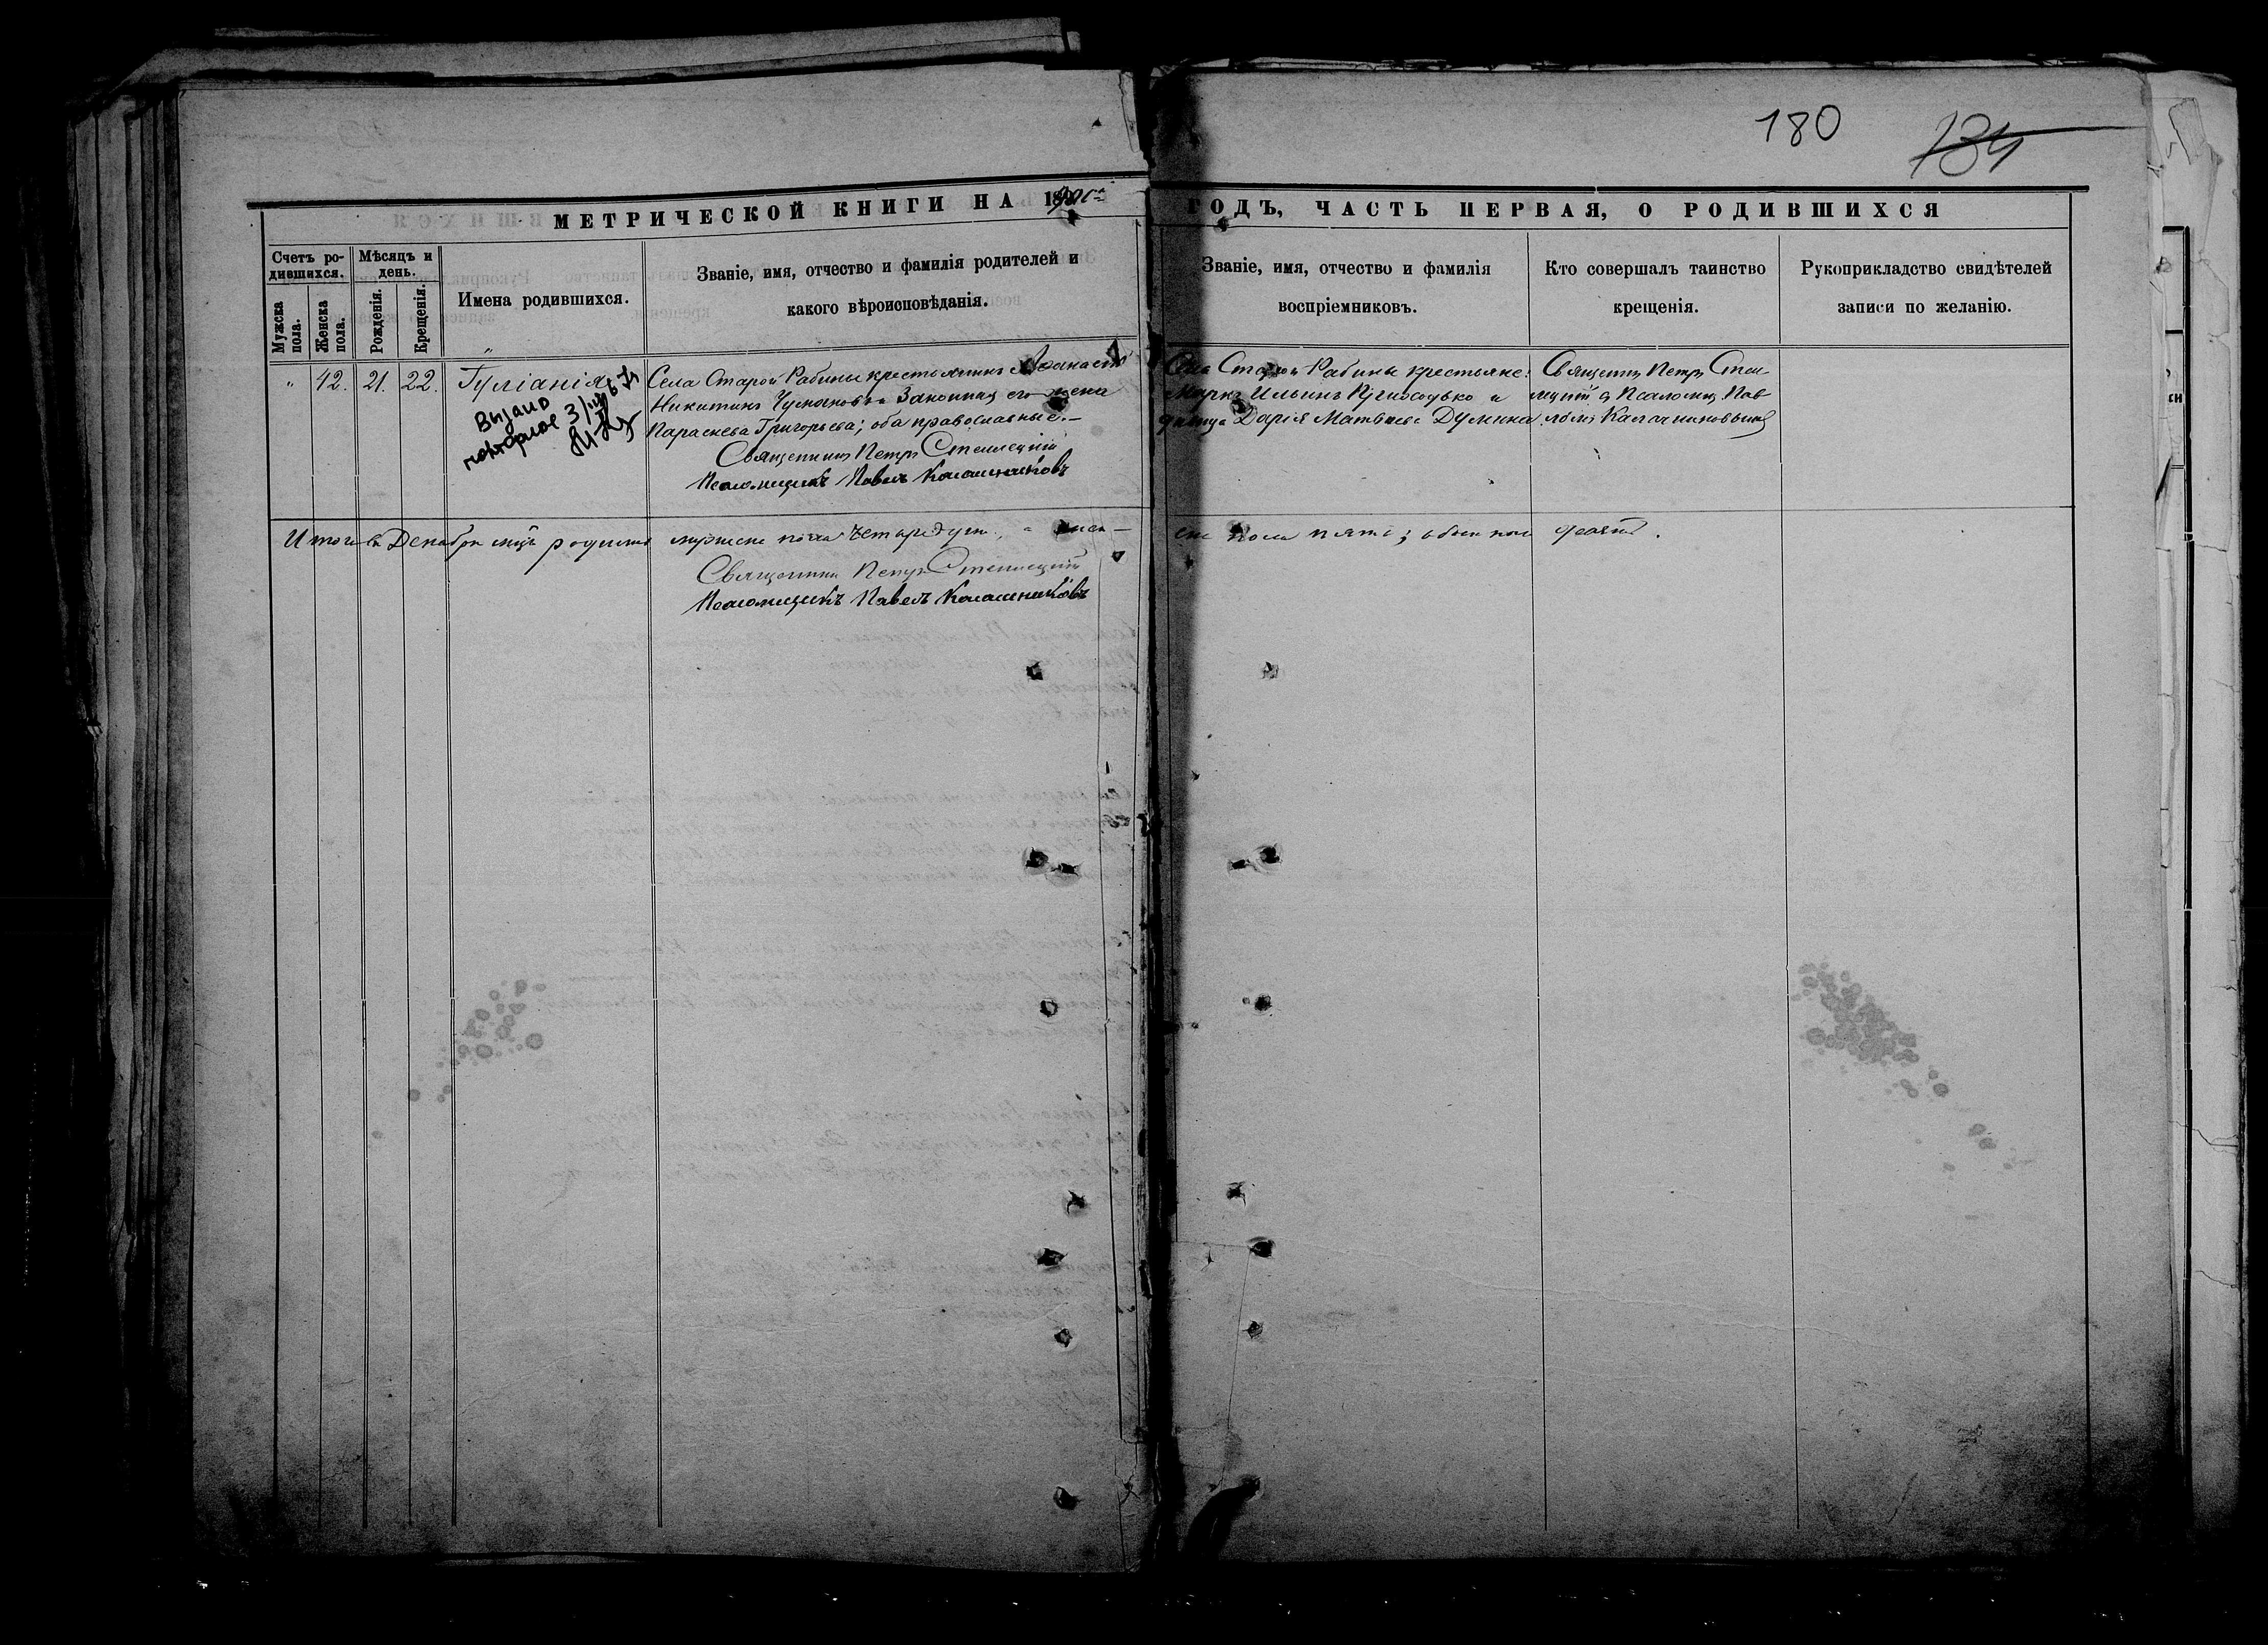 180
184
МЕТРИЧЕСКОЙ КНИГИ НА
ГОДЪ, ЧАСТЬ ПЕРВАЯ, О РОДИВШИХСЯ
Счетъ ро-
дившихся.
Мужска
пола.
Женска
пола.
Мѣсяцъ и
день.
Рожденія.
Крещенія.
Имена родившихся.
Званіе, имя, отчество и фамилія родителей и
какого вѣроисповѣданія.
Званіе, имя, отчество и фамилія
воспріемниковъ.
Кто совершалъ таинство
крещенія.
Рукоприкладство свидѣтелей
записи по желанію.
" 42. 21. 22. Іуліанія
Выдано
повторное
Села Старой Рабины крестьянинъ Аѳанасій
Никитинъ Законная его жена
Параскева Григорьева; оба православные.—
Священникъ Петръ
Псаломщикъ Павелъ Калашниковъ
Села Старой Рабины крестьяне:
Маркъ Ильинъ и
девица Дарія Матвѣева Думина
Священникъ Петръ
съ Псаломщ. Пав-
ломъ Калашниковымъ
Итого въ Декабрѣ мцѣ родилось мужска пола четыре души, а женс-
ска пола пять; обоего пола девять.
Священникъ Петръ
Псаломщикъ Павелъ Калашниковъ